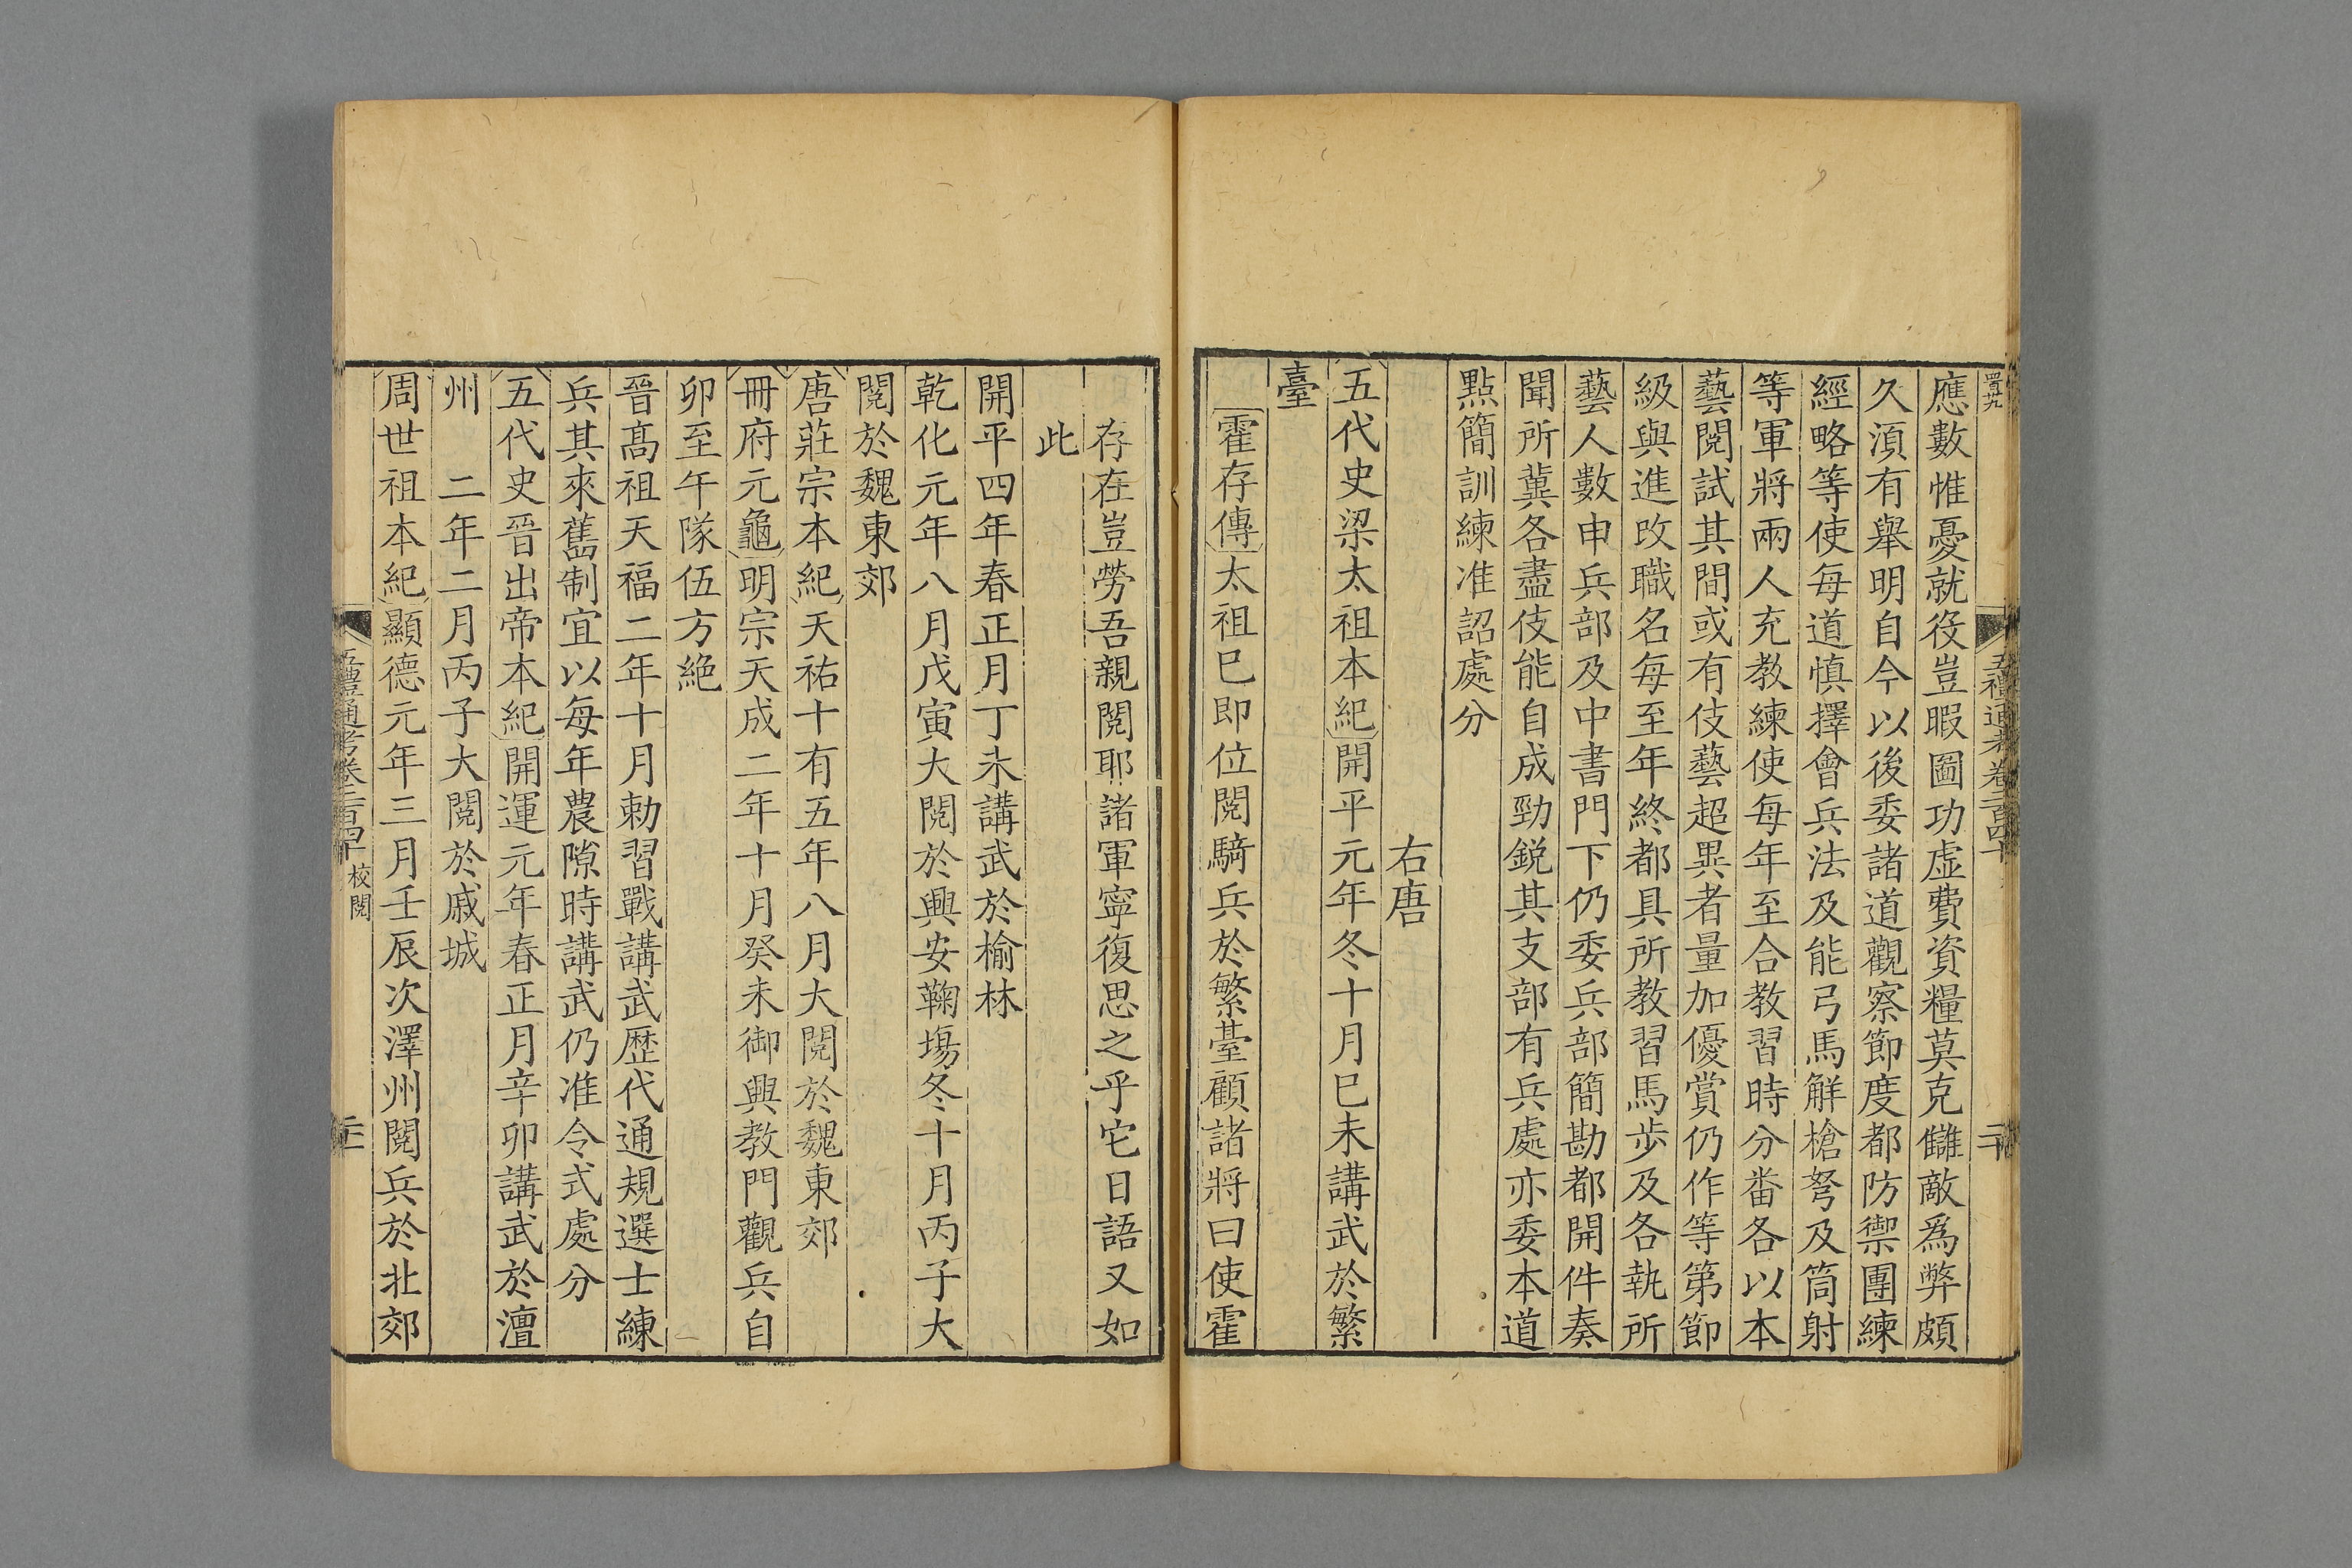 應數惟憂就役豈暇圖功虛費資糧莫克讎敵爲弊頗
久湏有舉明自今以後委諸道觀察節度都防禦團練
經略等使每道慎擇會兵法及能弓馬觧槍弩及筒射
等軍將兩人充教練使每年至合教習時分畨各以本
藝閱試其間或有伎藝超異者量加優賞仍作等第節
級與進改職名每至年終都具所教習馬步及各執所
藝人數申兵部及中書門下仍委兵部簡勘都開件奏
聞所冀各盡伎能自成勁鋭其支部有兵處亦委本道
點簡訓練准詔處分
右唐
五代史梁太祖本紀開平元年冬十月巳未講武於繁
臺
霍存傳太祖巳即位閱騎兵於繁臺顧諸將曰使霍
存在豈勞吾親閱耶諸軍寧復思之乎它日語又如
此
開平四年春正月丁未講武於榆林
乾化元年八月戊寅大閱於興安鞠塲冬十月丙子大
閱於魏東郊
唐莊宗本紀天祐十有五年八月大閱於魏東郊
冊府元龜明宗天成二年十月癸未御興教門觀兵自
卯至午隊伍方絶
晉髙祖天福二年十月勅習戰講武歴代通規選士練
兵其來舊制宜以每年農隙時講武仍准令式處分
五代史晉出帝本紀開運元年春正月辛卯講武於澶
州　二年二月丙子大閱於戚城
周世祖本紀顯德元年三月壬辰次澤州閱兵於北郊
五禮通考卷二百四十　校閱